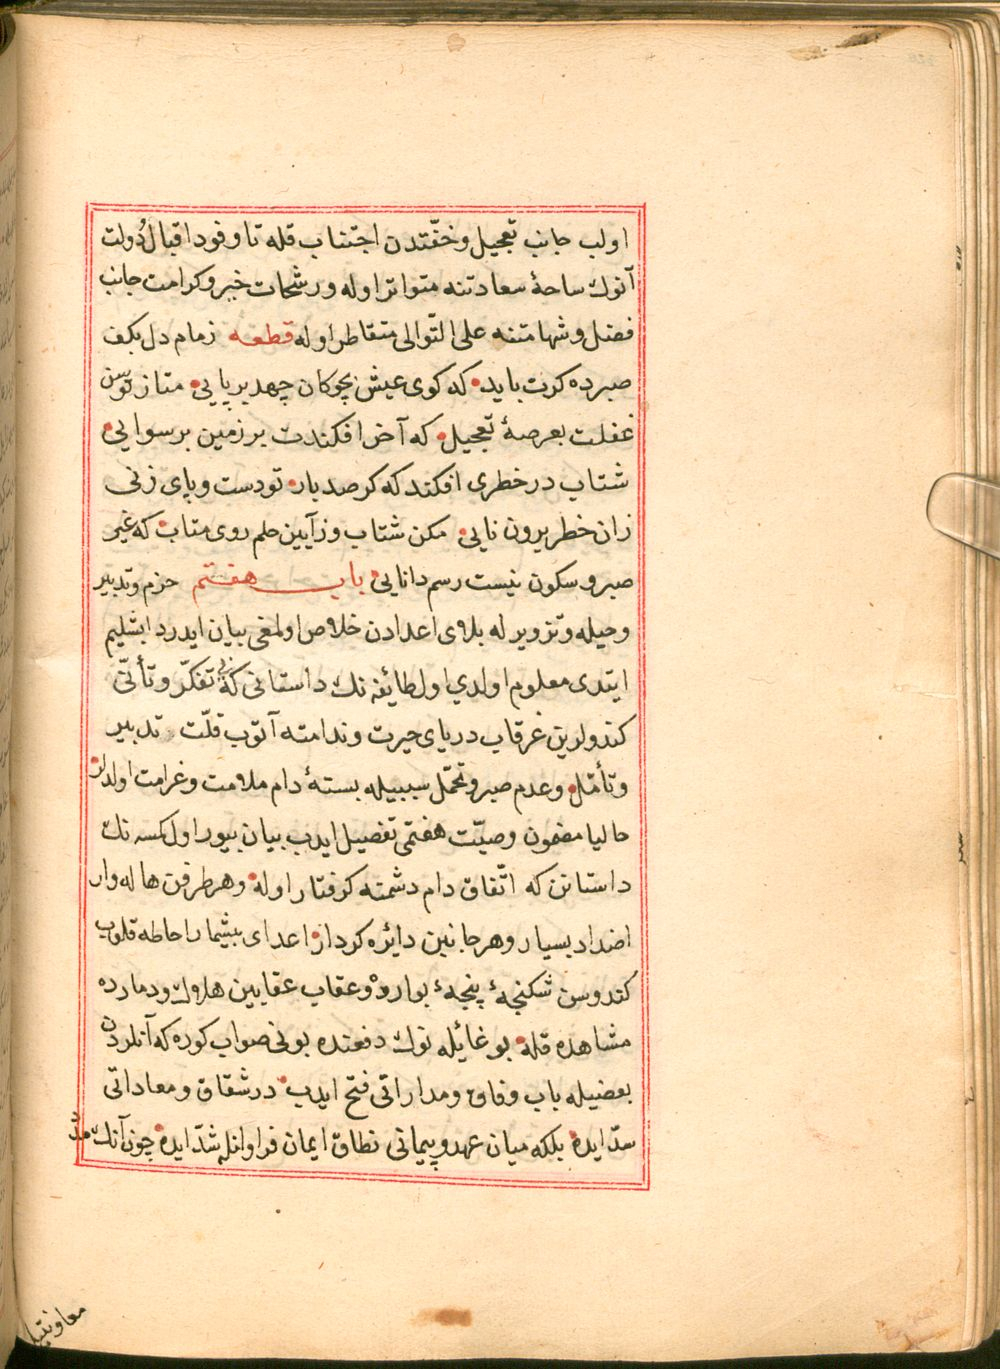 اولب جانب تعجیل و خفّتدن اجتناب قله تا وفود اقبال و دولت
آنوك ساحۀ سعادتنه متواتر اوله و رشحات خیر و كرامت جانب
فضل و شهامتنه علی التّوالی متقاطر اوله قطعه زمام دل بكف
صبر ده كرت باید که کوی عیش بچوكان جهد بر پایی متاز توسن
غفلت بعرصۀ تعجیل که آخر افكندت بر زمین برسوایی
شتاب در خطری افكند که كر صد بار تو دست و پای زنی
زان خطر برون نایی مكن شتاب و ز آیین حلم روی متاب که غیر
صبر و سكون نیست رسم دانایی باب هفتم حزم و تدبیر
و حیله و تزویر له بلای اعدادن خلاص اولمغی بیان ایدر دابشلیم
ایتدی معلوم اولدی اول طائفه نك داستانی که بی تفكّر و تأنّی
كندولرین غرقاب دریای حیرت و ندامته آتوب قلّت تدبیر
و تأمّل و عدم صبر و تحمّل سببیله بستۀ دام ملامت و غرامت اولدلر
حالیا مضمون وصیّت هفتمی تفصیل ایدب بیان بیور اول كمسه نك
داستانن که اتّفاق دام دشمنه كرفتار اوله و هر طرفدن هاله وار
اضداد بسیار و هر جانبین دائره كردار اعدای بیشمار احاطه قلوب
كندوسن شكنجۀ پنجۀ بوارده و عقاب عقابین هلاك و دمارده
مشاهده قله بو غائیله نوك دفعنده بونی صواب كوره که آنلردن
بعضیله باب وفاق و مداراتی فتح ایدب در شقاق و معاداتی
سدّ ایده بلكه میان عهد و پیمانی نطاق ایمان فراوانله شدّ ایده چون آنك مدد
معاونتیله